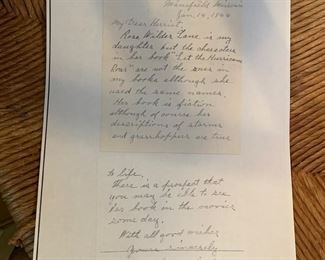 Mansfield Missouri
Jan. 14, 19
My Dear Harriet,
Rose Wilder Lane is my
daughter but the characters
in her book "Let the Hurricane
Roar" are not the ones in
my books although she
used the same names.
Her book is fiction
although of course her
descriptions of storms
and grasshoppers are true
to life.
There is a prospect that
you may be able to see
her book in the movies
some day.
With all good wishes
Yours sincerely